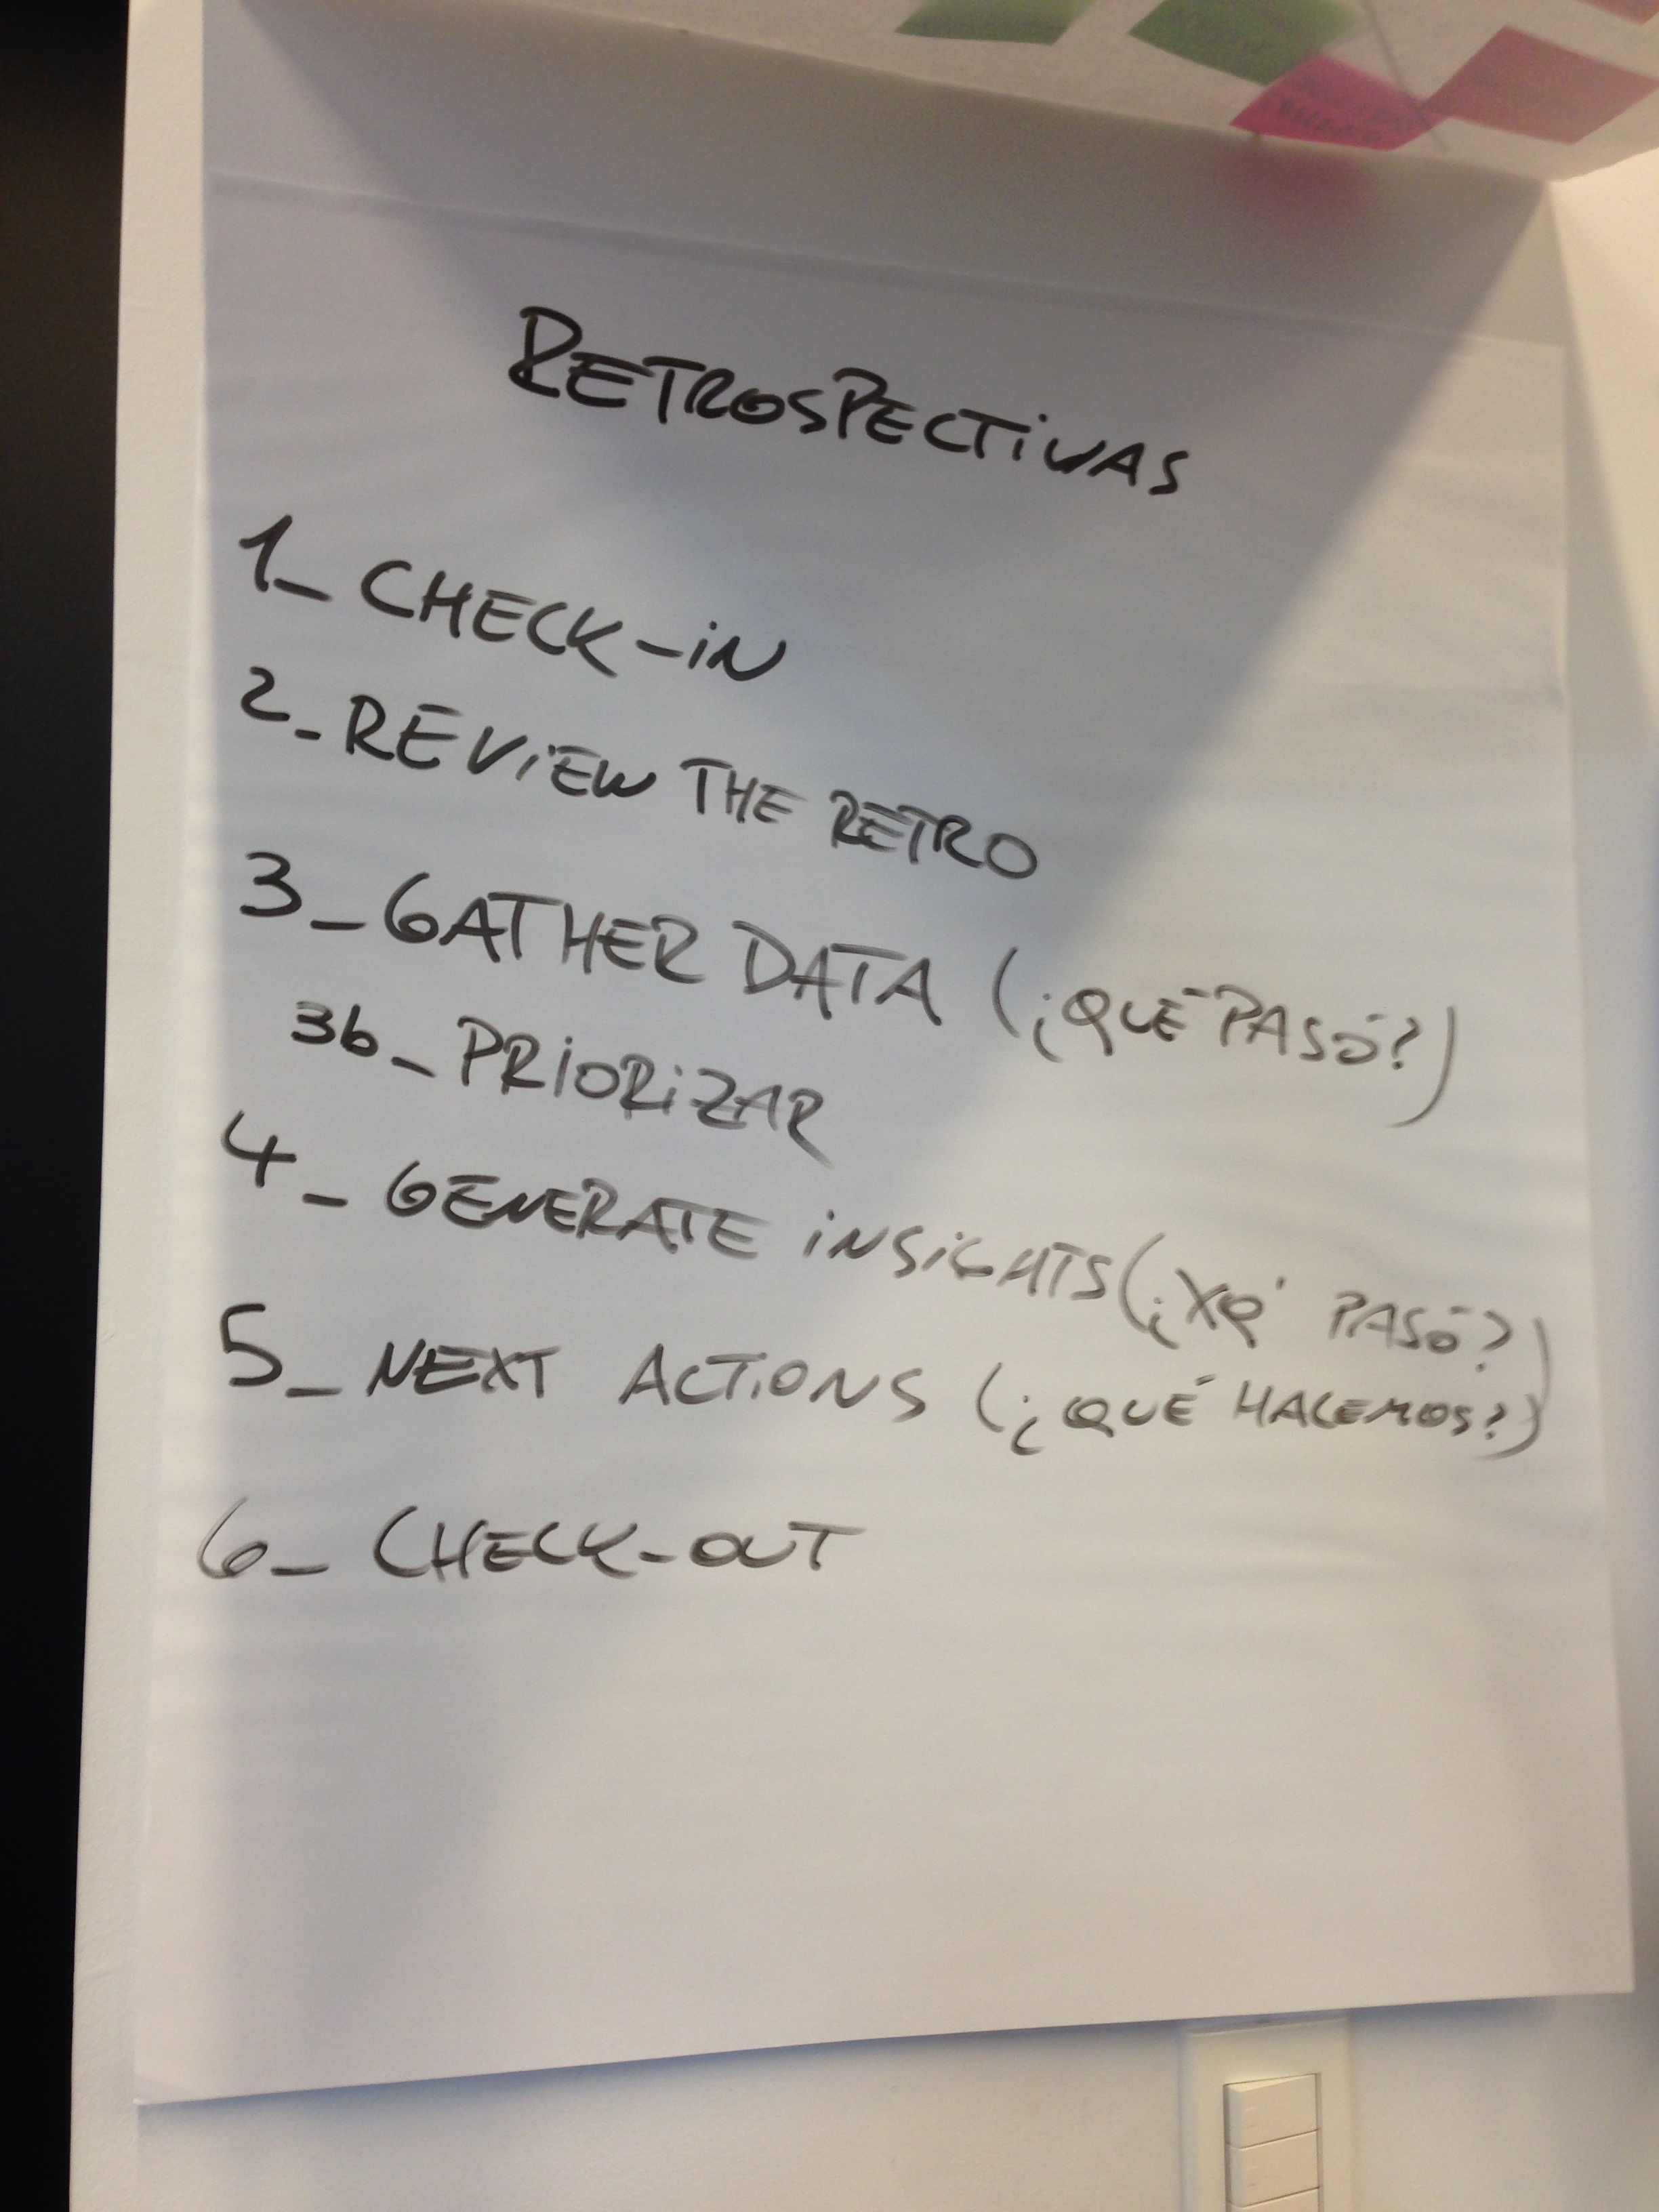 RETROSPECTIVAS
1_ CHECK-iN
2_ REViEW THE RETRO
3_ GATHER DATA (¿QUÉ PASÓ?)
3b_ PRiORiZAR
4_ GENERATE iNSiGHTS (¿XQ' PASÓ?)
5_ NEXT ACTiONS (¿QUÉ HACEMOS?)
6_ CHECK-OUT